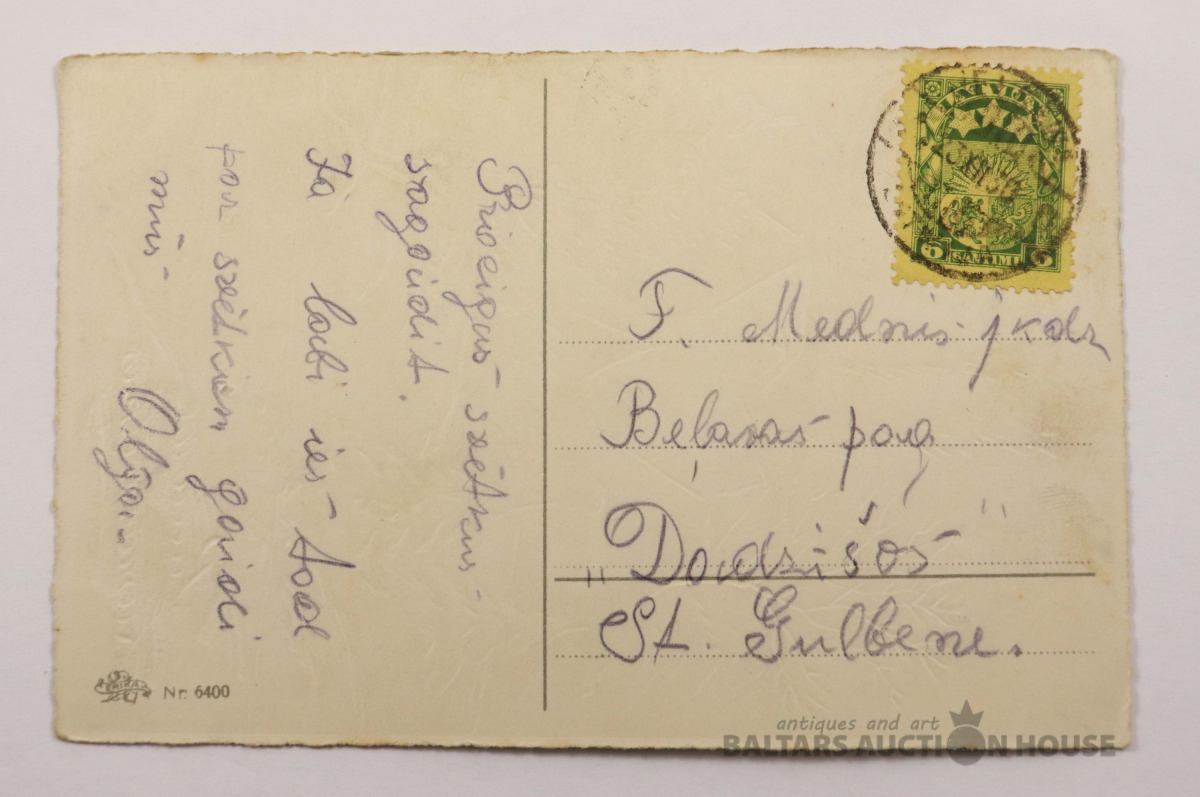 Priecigus svētkus
svagaidit.
Ja labi ies tad
par svētkiem gaidi
mūs
Olga
LATVIJA
6 SANTIMI 6
F. Mednis jkdz
Beļavas pag
„Dadzišos"
St. Gulbene.
ERIKA
Nr. 6400
antiques and art
BALTARS AUCTION HOUSE